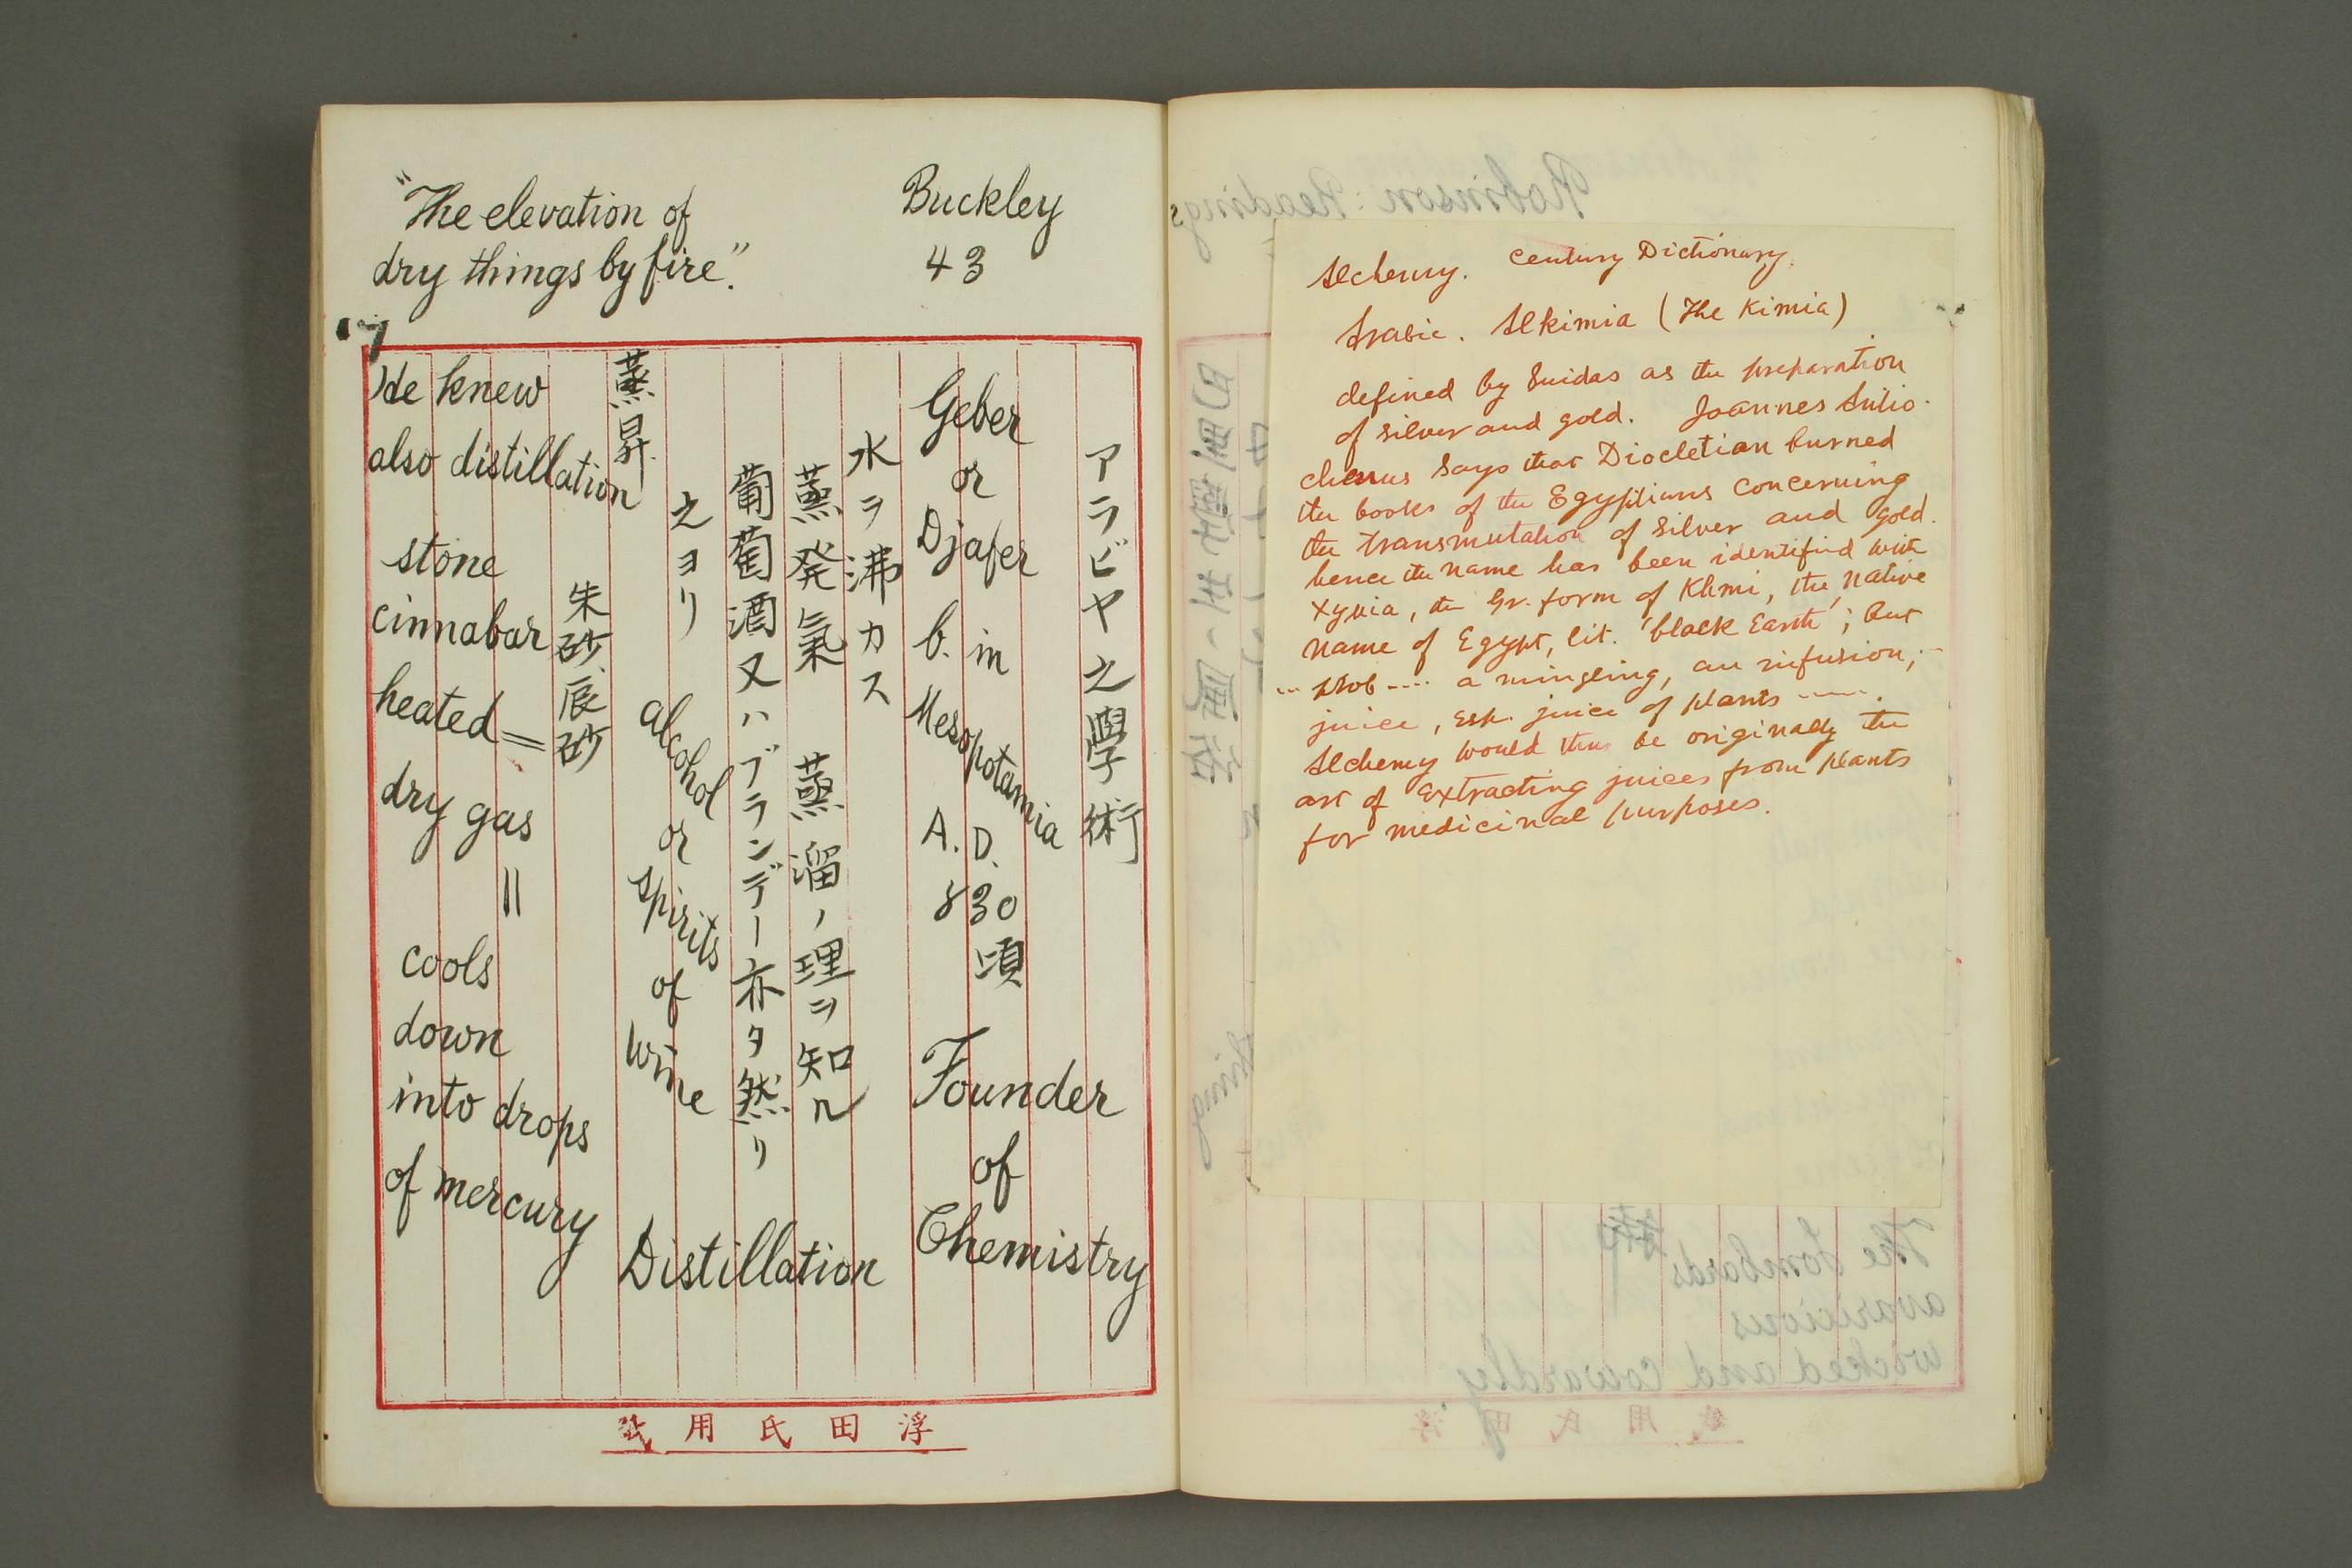 "The elevation of
dry things by fire".
Buckley
43
アラビヤ之學術
Geber
or
Djafer
b. in
Mesopotamia
A. D.
830
頃
Founder
of
Chemistry
水ヲ沸カス
蒸発氣 蒸溜ノ理ヲ知ル
葡萄酒又ハブランデー亦タ然リ
之ヨリ
alcohol
or
spirits
of
wine
Distillation
蒸昇
He knew
also distillation
stone
cinnabar
朱砂、辰砂
heated =
dry gas
=
cools
down
into drops
of mercury
浮田氏用
Alchemy. Century Dictionary.
Arabic. Alkimia (The Kimia)
defined by Suidas as the preparation
of silver and gold. Joannes Antio-
chenus says that Diocletian burned
the books of the Egyptians concerning
the transmutation of silver and gold.
hence the name has been identified with
Χημία, the Gr. form of Khmi, the native
name of Egypt, lit. 'black Earth'; but
... prob .... a mingling, an infusion, -
juice, esp. juice of plants ----.
Alchemy would thus be originally the
art of extracting juices from plants
for medicinal purposes.
Robinson: Readings
The Lombards
avaricious
wicked and cowardly